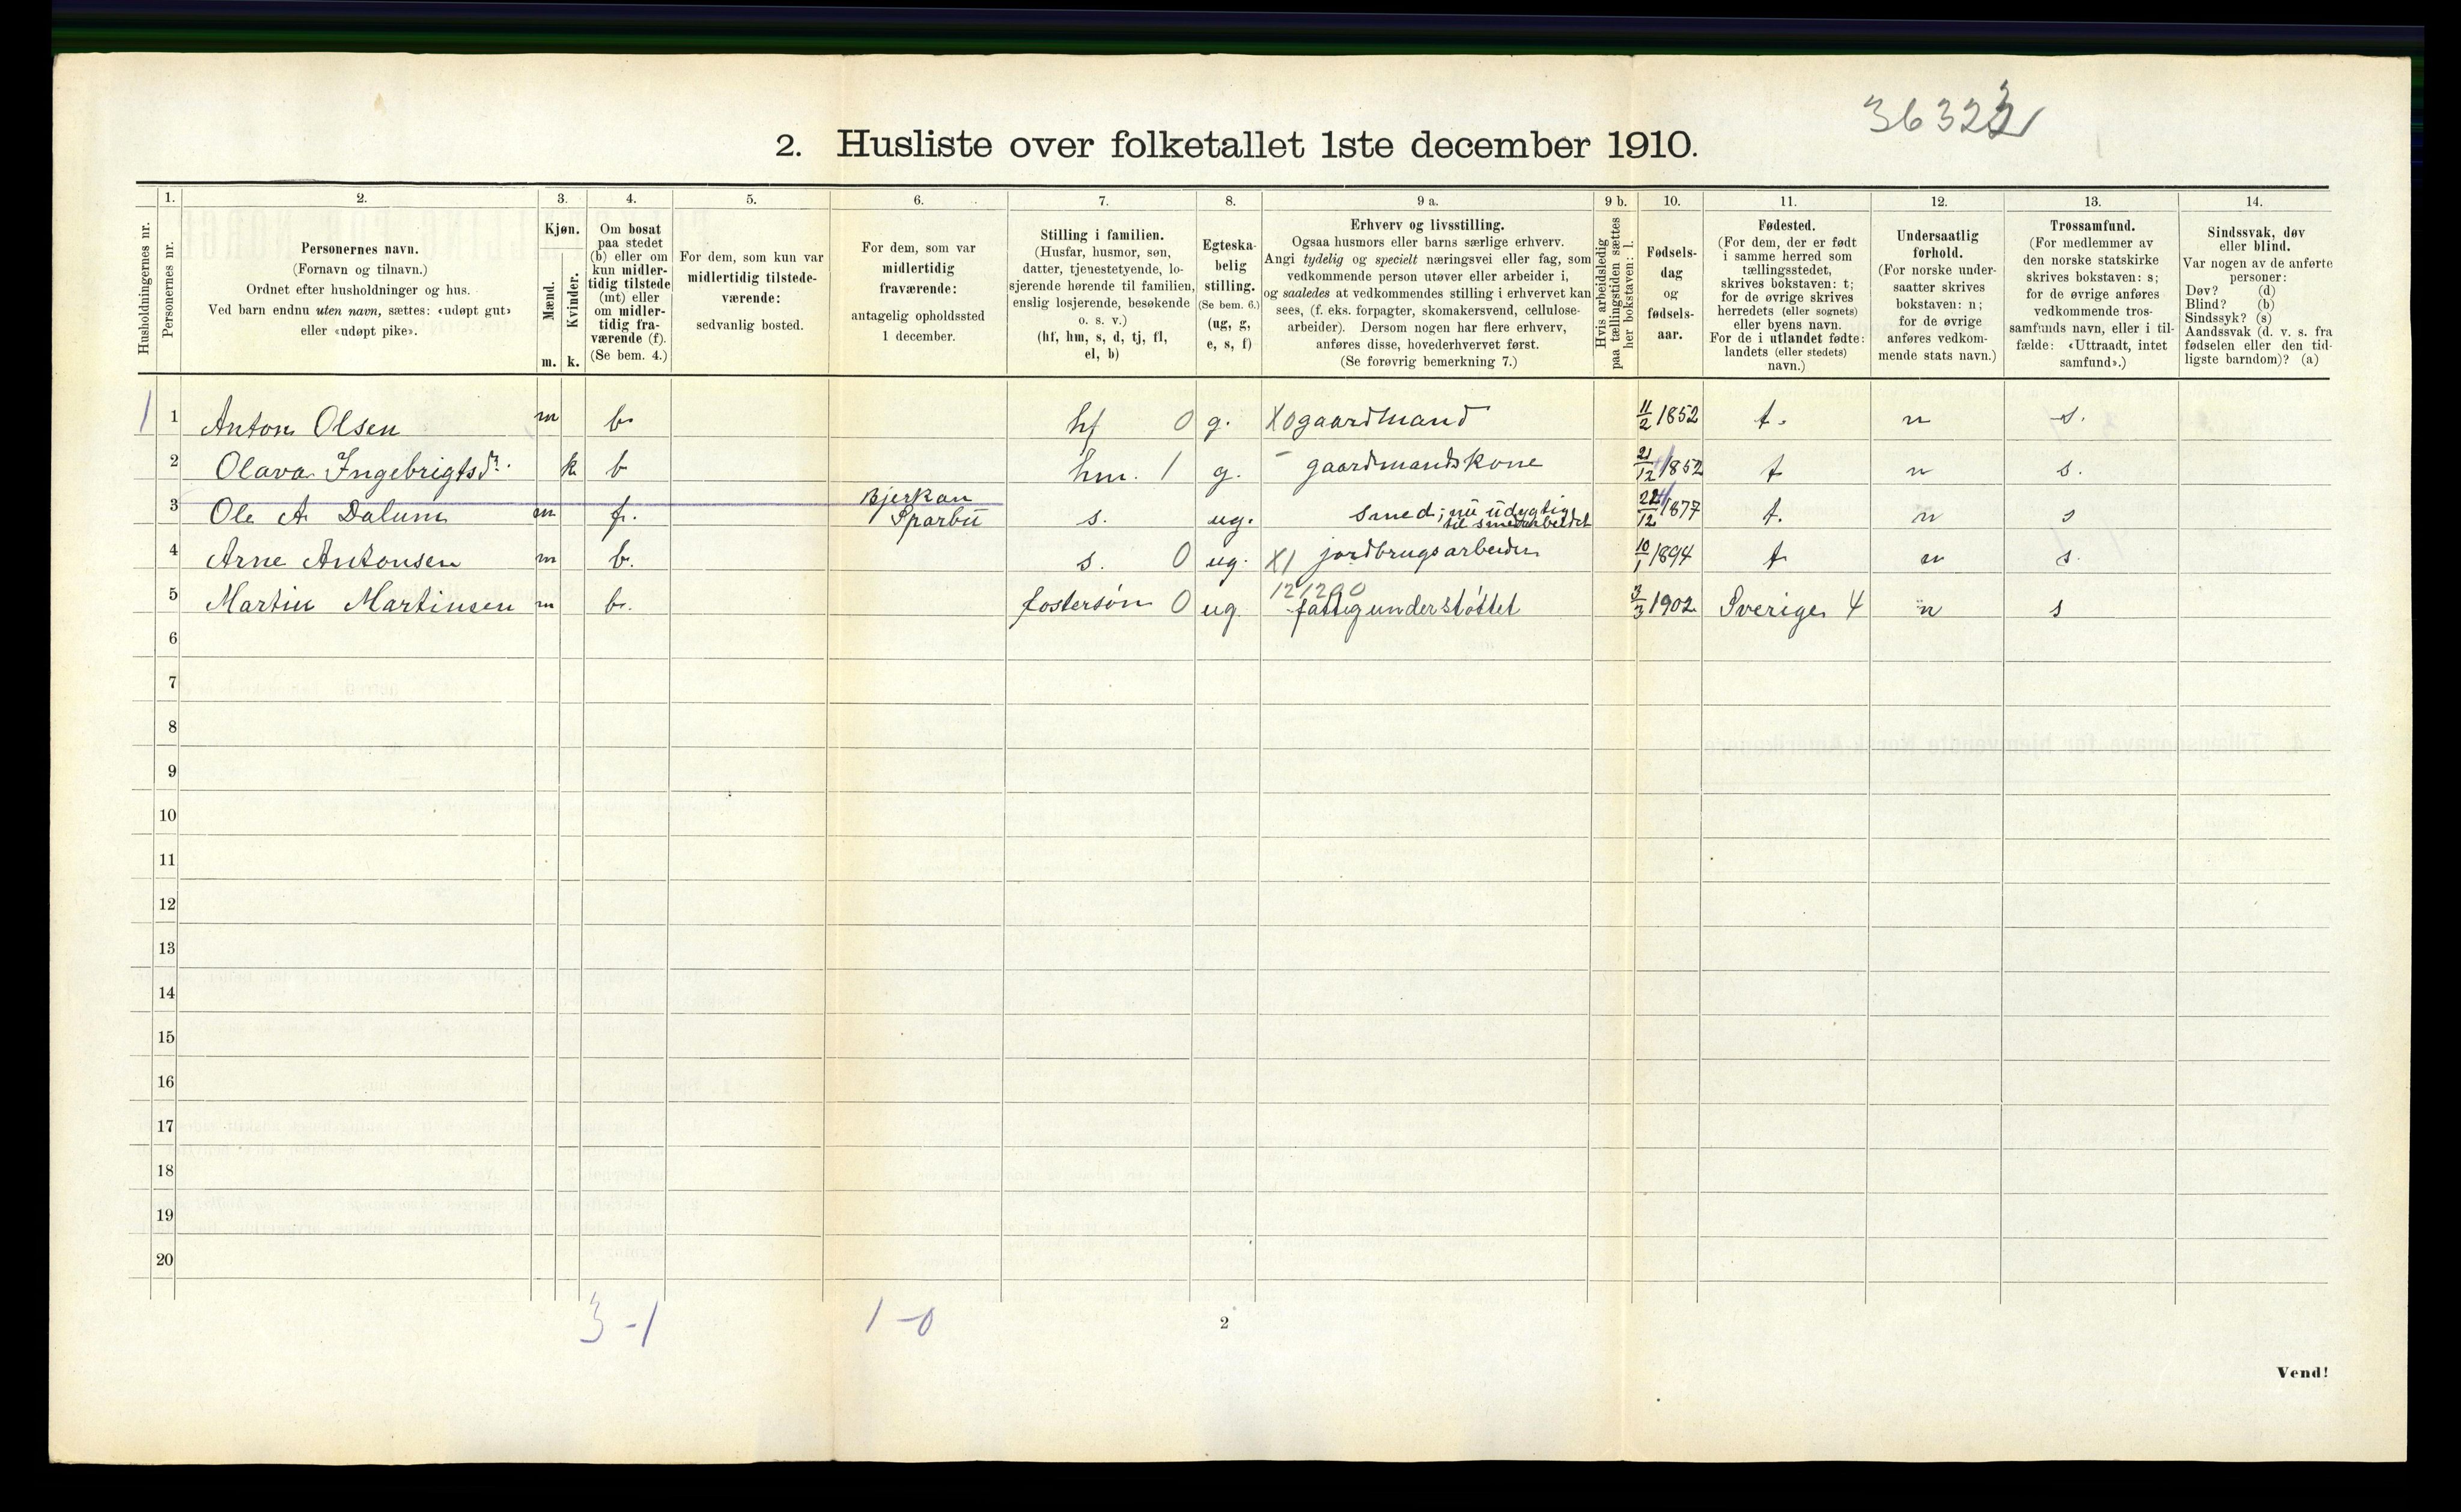 36323
2. Husliste over folketallet 1ste december 1910.
Husholdningernes nr.
1.
Personernes nr.
2.
Personernes navn.
(Fornavn og tilnavn.)
Ordnet efter husholdninger og hus.
Ved barn endnu uten navn, sættes: «udøpt gut»
eller «udøpt pike».
3.
Kjøn.
Mænd.
Kvinder.
m. k.
4.
Om bosat
paa stedet
(b) eller om
kun midler-
tidig tilstede
(mt) eller
om midler-
tidig fra-
værende (f).
(Se bem. 4.)
5.
For dem, som kun var
midlertidig tilstede-
værende:
sedvanlig bosted.
6.
For dem, som var
midlertidig
fraværende:
antagelig opholdssted
1 december.
7.
Stilling i familien.
(Husfar, husmor, søn,
datter, tjenestetyende, lo-
sjerende hørende til familien,
enslig losjerende, besøkende
o. s. v.)
(hf, hm, s, d, tj, fl,
el, b)
8.
Egteska-
belig
stilling.
(Se bem. 6.)
(ug, g,
e, s, f)
9 a.
Erhverv og livsstilling.
Ogsaa husmors eller barns særlige erhverv.
Angi tydelig og specielt næringsvei eller fag, som
vedkommende person utøver eller arbeider i,
og saaledes at vedkommendes stilling i erhvervet kan
sees, (f. eks. forpagter, skomakersvend, cellulose-
arbeider). Dersom nogen har flere erhverv,
anføres disse, hovederhvervet først.
(Se forøvrig bemerkning 7.)
9 b.
Hvis arbeidsledig
paa tællingstiden sættes
her bokstaven: l.
10.
Fødsels-
dag
og
fødsels-
aar.
11.
Fødested.
(For dem, der er født
i samme herred som
tællingsstedet,
skrives bokstaven: t;
for de øvrige skrives
herredets (eller sognets)
eller byens navn.
For de i utlandet fødte:
landets (eller stedets)
navn.)
12.
Undersaatlig
forhold.
(For norske under-
saatter skrives
bokstaven: n;
for de øvrige
anføres vedkom-
mende stats navn.)
13.
Trossamfund.
(For medlemmer av
den norske statskirke
skrives bokstaven: s;
for de øvrige anføres
vedkommende tros-
samfunds navn, eller i til-
fælde: «Uttraadt, intet
samfund».)
14.
Sindssvak, døv
eller blind.
Var nogen av de anførte
personer:
Døv? (d)
Blind? (b)
Sindssyk? (s)
Aandssvak (d. v. s. fra
fødselen eller den tid-
ligste barndom)? (a)
1 1 Anton Olsen m b. hf 0 g. X0 gaardmand 11/2 1852 t. n s.
2 Olava Ingebrigtsdr. k b hm. 1 g. - gaardmandskone 21/12 1852 t n s.
3 Ole A Dalum m f. Bjerkan Sparbu s. ug. smed; nu udygtig til smedarbeidet 22/12 1877 t. n s
4 Arne Antonsen m b. s. 0 ug. X1 jordbrugsarbeider 10/1 1894 t n s.
5 Martin Martinsen m b. fostersøn 0 ug. 121200 fattigunderstøttet 3/3 1902 Sverige 4 n s
6
7
8
9
10
11
12
13
14
15
16
17
18
19
20
3-1 1-0
2
Vend!